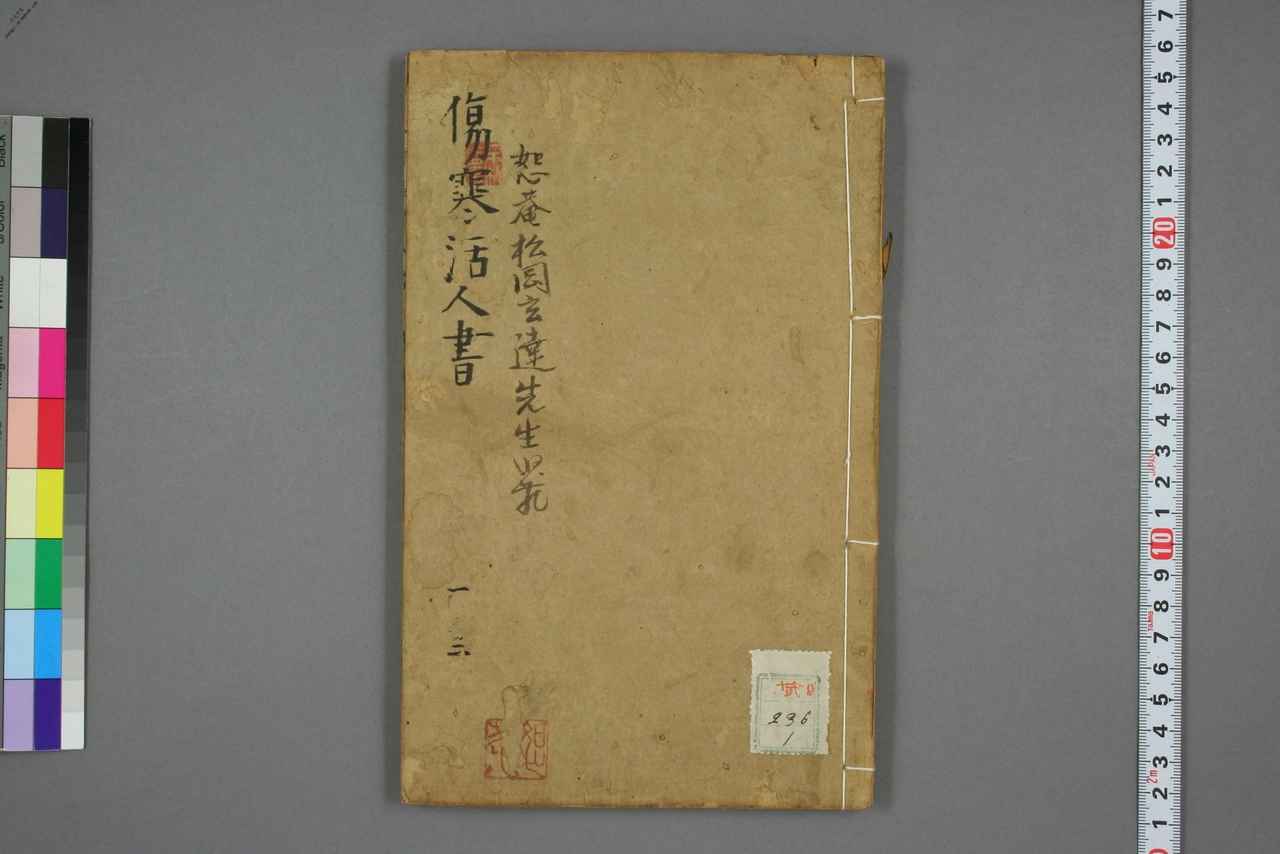 傷寒活人書
一 三
恕菴松岡玄達先生
236
1
7
6
5
4
3
2
1
20
9
8
7
6
5
4
3
2
1
10
9
8
7
6
5
4
3
2
1
2m
JAPAN
Black
White
Magenta